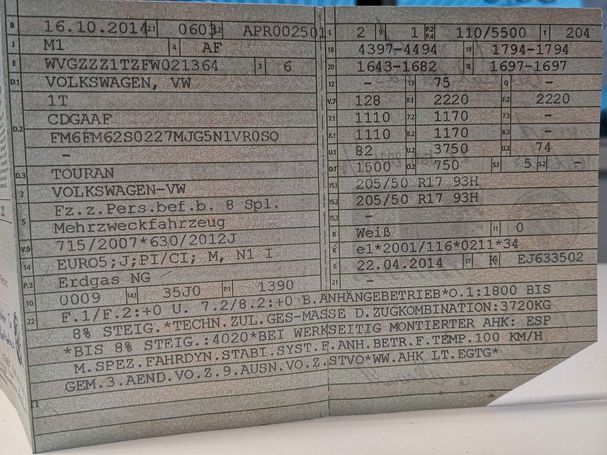 B 16.10.2014 2.1 0603 2.2 APR002501
J M1 4 AF
E WVGZZZ1TZFW021364 3 6
D.1 VOLKSWAGEN, VW
1T
D.2 CDGAAF
FM6FM62S0227MJG5N1VR0SO
-
D.3 TOURAN
2 VOLKSWAGEN-VW
5 Fz.z.Pers.bef.b. 8 Spl.
Mehrzweckfahrzeug
V.9 715/2007*630/2012J
14 EURO5;J;PI/CI; M, N1 I
P.3 Erdgas NG
10 0009 14.1 35J0 P.1 1390
L 2 9 1 P.2 P.4 110/5500 T 204
18 4397-4494 19 1794-1794
20 1643-1682 G 1697-1697
12 - 13 75 Q -
V.7 128 F.1 2220 F.2 2220
7.1 1110 7.2 1170 7.3 -
8.1 1110 8.2 1170 8.3 -
U.1 82 U.2 3750 U.3 74
O.1 1500 O.2 750 S.1 5 S.2 -
15.1 205/50 R17 93H
15.2 205/50 R17 93H
15.3 -
R Weiß 11 0
K e1*2001/116*0211*34
6 22.04.2014 17 K 16 EJ633502
21
22 F.1/F.2:+0 U. 7.2/8.2:+0 B.ANHÄNGEBETRIEB*O.1:1800 BIS
8% STEIG.*TECHN.ZUL.GES-MASSE D.ZUGKOMBINATION:3720KG
*BIS 8% STEIG.:4020*BEI WERKSEITIG MONTIERTER AHK: ESP
M.SPEZ.FAHRDYN.STABI.SYST.F.ANH.BETR.F.TEMP.100 KM/H
GEM.3.AEND.VO.Z.9.AUSN.VO.Z.STVO*WW.AHK LT.EGTG*